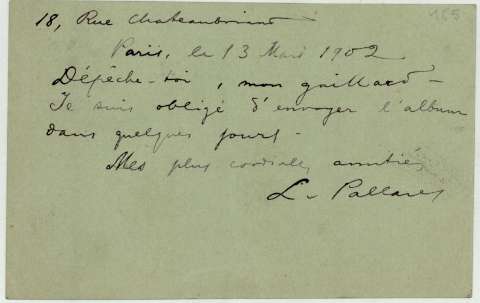 165
18, Rue Chateaubriand
Paris, le 13 Mars 1902
Dépêche-toi, mon gaillard —
Je suis obligé d'envoyer l'album
dans quelques jours -
Mes plus cordiales amitiés
L. Pallares